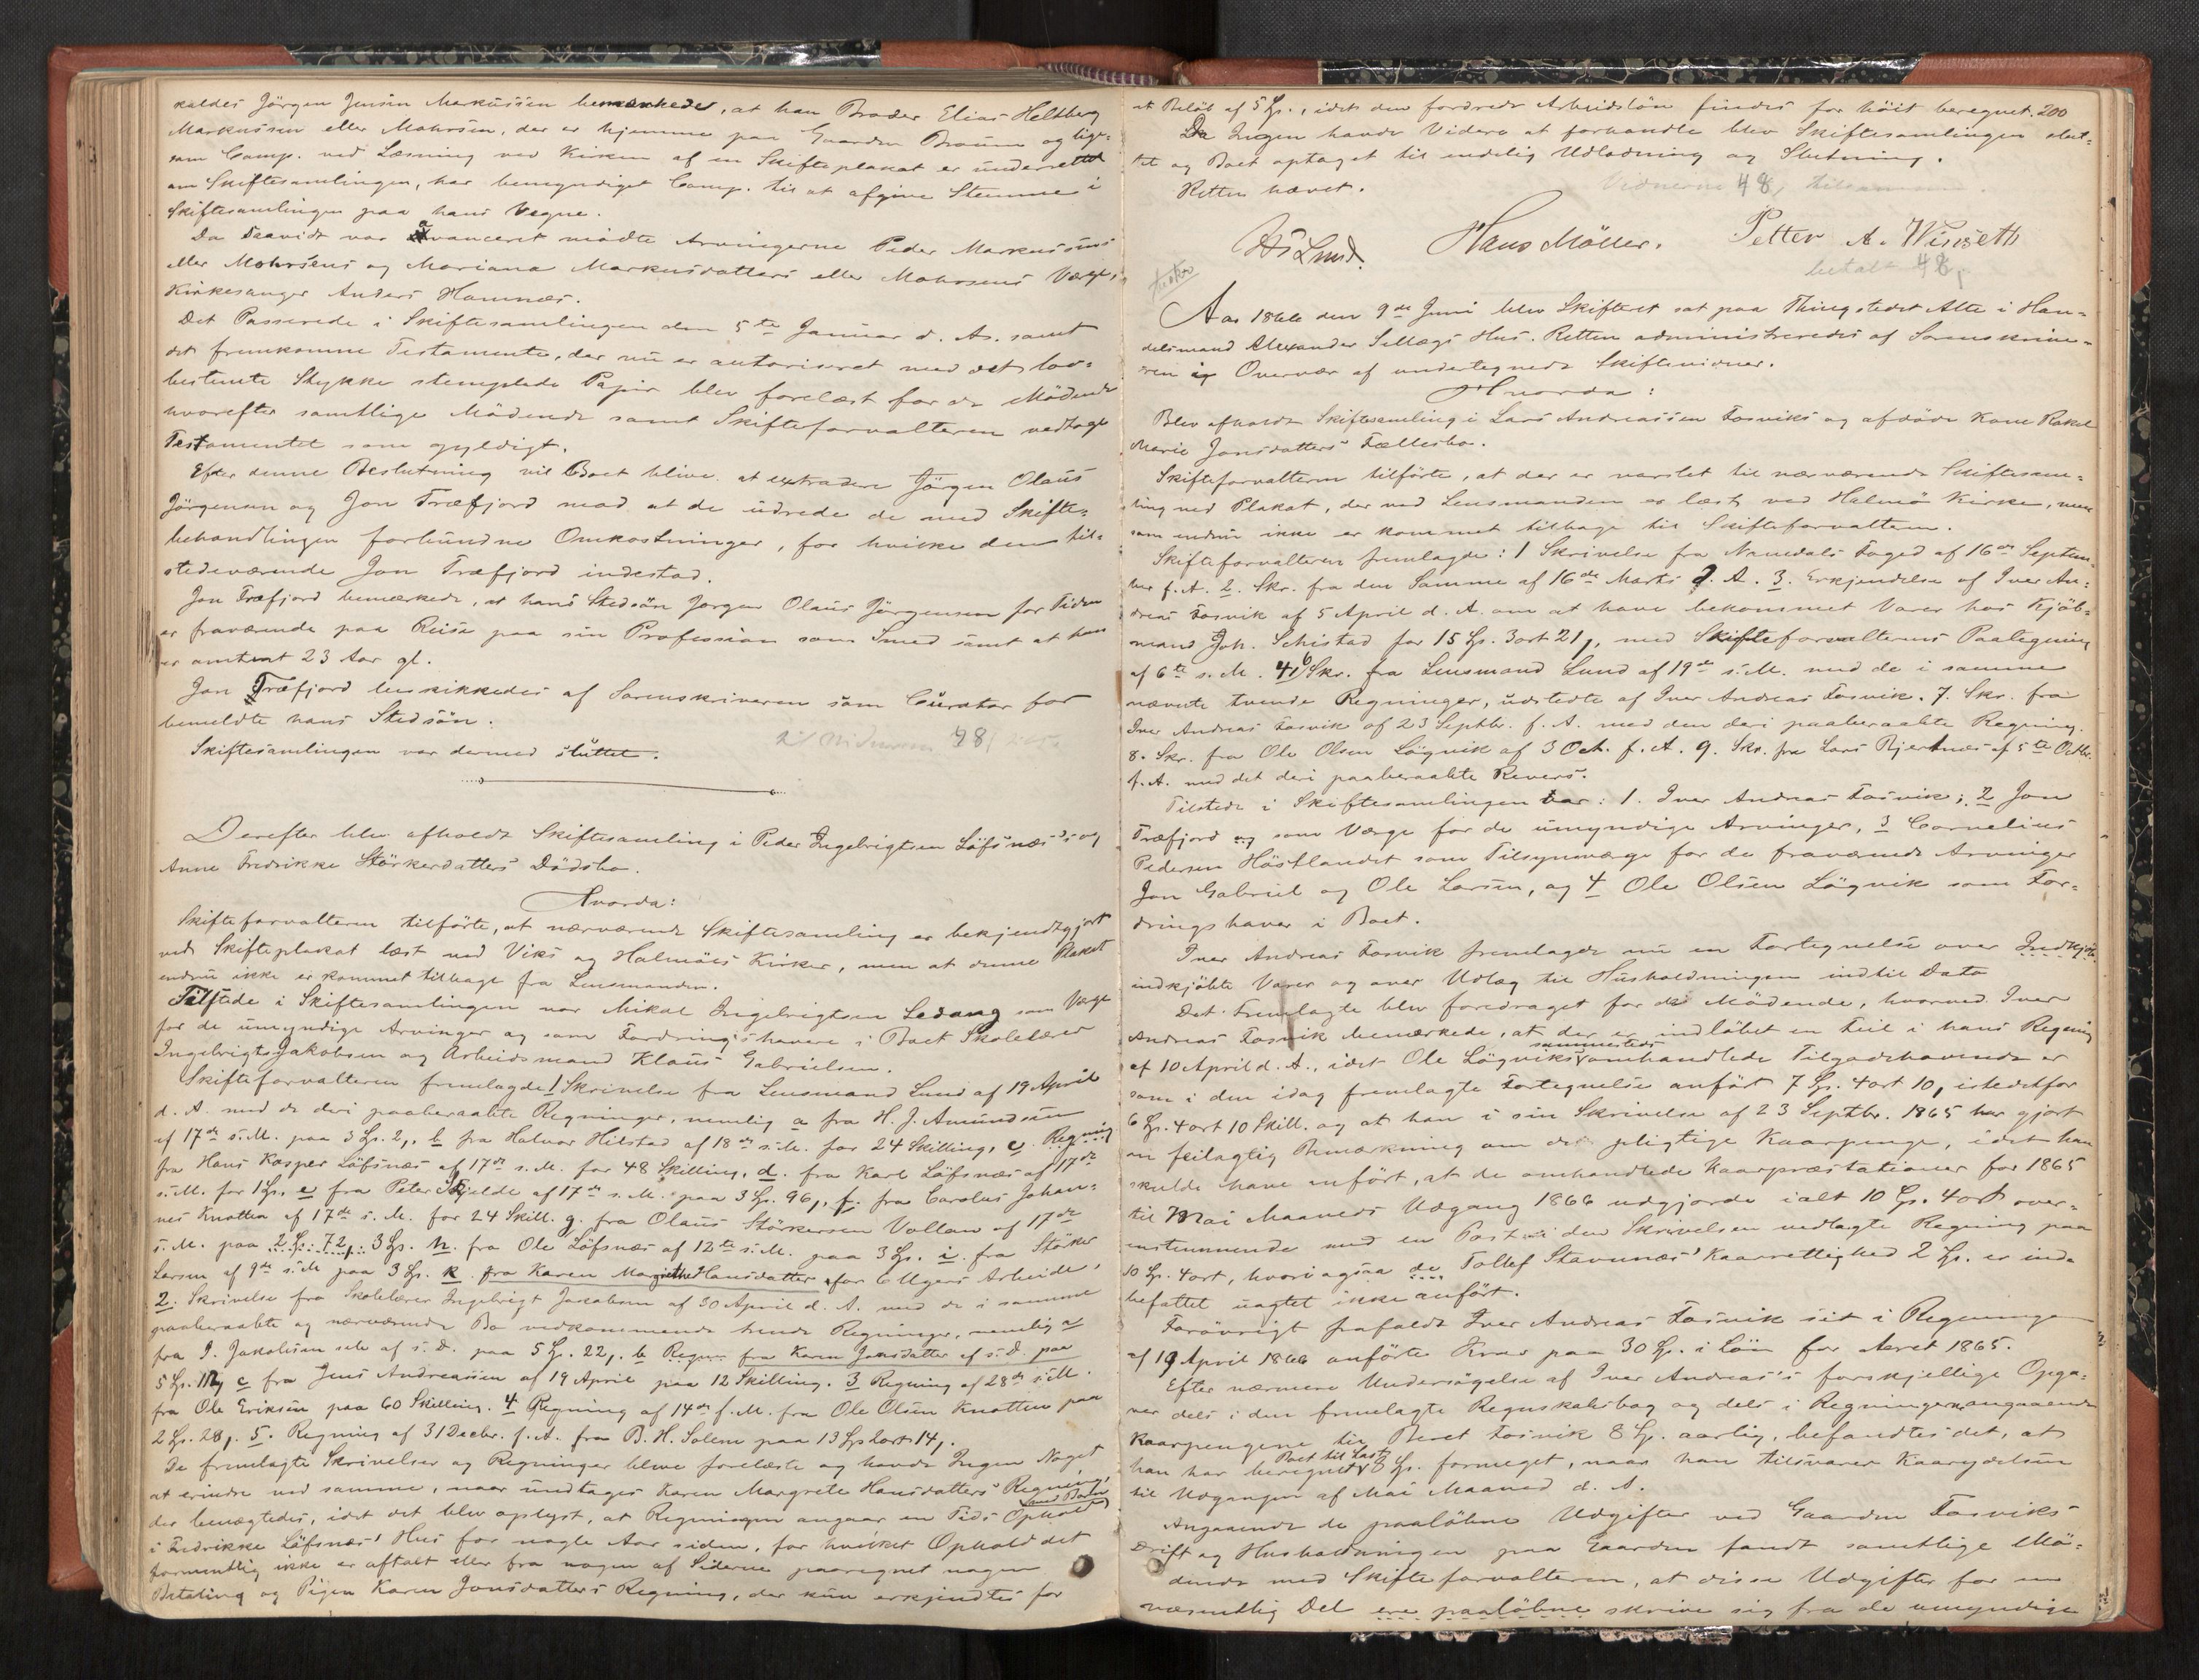 kaldes Jörgen Jensen Markussen bemærkede, at han Broder Elias Heltberg
Markussen eller Mohrsen, der er hjemme paa Gaarden Braum og lige-
som Comp. ved Læsning ved Kirken af en Skifteplakat er underrettet
om Skiftesamlingen, har bemyndiget Comp. til at afgive Stemme i
Skiftesamlingen paa hans Vegne.
Da Saavidt var avanceret mödte Arvingerne Peder Markussens
eller Mohrsens og Mariana Markusdatters eller Mohrsens Værge,
Kirkesanger Anders Hamnæs.
Det Passerede i Skiftesamlingen den 5te Januar d. As. samt
det fremkomne Testamente, der nu er autoriseret med det lov-
bestemte Stykke stemplede Papir blev forelæst for de Mödende
hvorefter samtlige Mödende samt Skifteforvalteren vedtage
Testamentet som gyldigt.
Efter denne Beslutning vil Boet blive at extradere Jörgen Olaus
Jörgensen og Jon Træfjord mod at de udrede de med Skifte-
behandlingen forbundne Omkostninger, for hvilke den til-
stedeværende Jon Træfjord indestod.
Jon Træfjord bemærkede, at hans Stedsön Jörgen Olaus Jörgensen for Tiden
er fraværende paa Reise paa sin Profession som Smed samt at han
er omtrent 23 Aar gl.
Jon Træfjord beskikkedes af Sorenskriveren som Curator for
bemeldte hans Stedsön.
Skiftesamlingen var dermed sluttet.
til Vidnerne 48
Derefter blev afholdt Skiftesamling i Peder Ingebrigtsen Löfsnæs's og
Anne Fredrikke Störkersdatters Dödsbo.
Hvorda:
Skifteforvalteren tilförte, at nærværende Skiftesamling er bekjendtgjort
ved Skifteplakat læst ved Viks og Halmöes Kirker, men at denne Plakat
endnu ikke er kommet tilbage fra Lensmanden.
Tilstede i Skiftesamlingen var Mikal Ingebrigtsen Ledang som Værge
for de umyndige Arvinger og som Fordringshavere i Boet Skolelærer
Ingebrigt Jakobsen og Arbeidsmand Klaus Gabrielsen.
Skifteforvalteren fremlagde 1 Skrivelse fra Lensmand Lund af 19 April
d. A. med de deri paaberaabte Regninger, nemlig a fra H. J. Amundsen
af 17de s. M. paa 3 Sp. 2, b fra Halvor Hilstad af 18de s. M. for 24 Skilling, c. Regning
fra Hans Kasper Löfsnæs af 17de s. M. for 48 Skilling, d. fra Karl Löfsnæs af 17de
s. M. for 1 Sp. e fra Peter Skjelde af 17de s. M. paa 3 Sp. 96, f. fra Carolus Johan-
nes Knotten af 17de s. M. for 24 Skill. g. fra Olaus Störkersen Vollan af 17de
s. M. paa 2 Sp. 72, 3 Sp. h. fra Ole Löfsnæs af 12te s. M. paa 3 Sp. i. fra Stöker
Larsen af 9de s. M paa 3 Sp. k fra Karen Margrethe Hansdatter for 6 Ugers Arbeide,
2. Skrivelse fra Skolelærer Ingebrigt Jakobsen af 30 April d. A. med de i samme
paaberaabte og nærværende Bo vedkommende trende Regninger, nemlig a
fra I. Jakobsen selv af s. D. paa 5 Sp. 22, b Regn. fra Karen Jonsdatter af s. D. paa
5 Sp. c fra Jens Andreassen af 19 April paa 12 Skilling. 3 Regning af 28de s. M.
fra Ole Eriksen paa 60 Skilling. 4 Regning af 14de f. M. fra Ole Olsen Knotten paa
2 Sp. 28, 5. Regning af 31 Decbr. f. A. fra B. H. Solem paa 13 Sp 2ort 14,.
De fremlagte Skrivelser og Regninger bleve forelæste og havde Ingen Noget
at erindre ved samme, naar undtages Karen Margrete Hansdatters Regning,
der benægtedes, idet det blev oplyst, at Regningen angaar en Tids Ophold med Barn
i Fredrikke Löfsnæs' Hus for nogle Aar siden, for hvilket Ophold det
formentlig ikke er aftalt eller fra nogen af Siderne paaregnet nogen
Betaling og Pigen Karen Jonsdatters Regning, der kun erkjendtes for
at Belöb af 5 Sp., idet den fordrede Arbeidslön findes for höit beregnet. 200
Da Ingen havde Videre at forhandle blev Skiftesamlingen slut-
tet og Boet optaget til endelig Udlodning og Slutning.
Retten hævet.
Vidnerne 48, tilsammen.
Lund. Hans Möller. Petter A. Wiiseth
betalt 48,
Aar 1866 den 9de Juni blev Skifteret sat paa Thingstedet Alte i Han-
delsmand Alexander Sellægs Hus. Retten administreredes af Sorenskrive-
ren ig Overvær af undertegnede Skiftevidner.
Hvorda:
Blev afholdt Skiftesamling i Lars Andreassen Fosviks og afdöde Kone Rakel
Marie Jonsdatters Fællesbo.
Skifteforvalteren tilförte, at der er varslet til nærværende Skiftesam-
ling ved Plakat, der ved Lensmanden er læst ved Halmö Kirke, men
som endnu ikke er kommet tilbage til Skifteforvalteren.
Skifteforvalteren fremlagde: 1 Skrivelse fra Namdals Foged af 16de Septem-
ber f. A. 2. Skr. fra den Samme af 16de Marts d. A. 3. Erkjendelse af Iver An-
dreas Fosvik af 5 April d. A. om at have bekommet Varer hos Kjöb-
mand Joh. Schistad for 15 Sp. 3ort 21, med Skifteforvalterens Paategning
af 6te s. M. 4 Skr. fra Lensmand Lund af 19de s. M. med de i samme
nævnte tvende Regninger, udstedte af Iver Andreas Fosvik. 7. Skr. fra
Iver Andreas Fosvik af 23 Septbr. f. A. med den deri paaberaabte Regning.
8. Skr. fra Ole Olsen Lögvik af 3 Oct. f. A. 9. Skr. fra Lars Bjertnæs af 5te Octbr.
f. A. med det deri paaberaabte Revers.
Tilstede i Skiftesamlingen var: 1. Iver Andreas Fosvik; 2 Jon
Træfjord og som Værge for de umyndige Arvinger, 3 Cornelius
Pedersen Höstlandet som Tilsynsværge for de fraværende Arvinger
Jon Gabriel og Ole Larsen, og 4 Ole Olsen Lögvik som For-
dringshaver i Boet.
Iver Andreas Fosvik fremlagde nu en Fortegnelse over Indkjöb
indkjöbte Varer og over Udlæg til Husholdningen indtil Dato
Det Fremlagte blev foredraget for de Mödende, hvorved Iver
Andreas Fosvik bemærkede, at der er indlöbet en Feil i hans Regning
af 10 April d. A., idet Ole Lögviks sammesteds omhandlede Tilgodehavende er
som i den idag fremlagte Fortegnelse anfört 7 Sp. 4ort 10, istedetfor
6 Sp. 4ort 10 Skill. og at han i sin Skrivelse af 23 Septbr. 1865 har gjort
en feilagtig Bemærkning om det pligtige Kaarpenge, idet han
skulde have anfört, at de omhandlede Kaarpræstationer for 1865
til Mai Maaneds Udgang 1866 udgjorde ialt 10 Sp. 4ort over-
ensstemmende med en Post i den Skrivelsen vedlagte Regning paa
10 Sp. 4ort, hvori ogsaa de Tollef Stavnnæs' Kaarrettighed 2 Sp. er ind-
befattet uagtet ikke anfört.
Forövrigt frafaldt Iver Andreas Fosvik sit i Regningen
af 19 April 1866 anförte Krav paa 30 Sp. i Lön for Aaret 1865.
Efter nærmere Undersögelse af Iver Andreas's forskjellige Opga-
ver dels i den fremlagte Regnskabsbog og dels i Regningen angaaende
Kaarpengene til Beret Fosvik 8 Sp. aarlig, befandtes det, at
han har beregnet Boet til Last 8 Sp. formeget, naar han tilsvarer Kaarydelsen
til Udgangen af Mai Maaned d. A.
Angaaende de paalöbne Udgifter ved Gaarden Fosviks
Drift og Husholdningen paa Gaarden fandt samtlige Mö-
dende med Skifteforvalteren, at disse Udgifter for en
væsentlig Del ere paalöbne skrive sig fra de umyndige